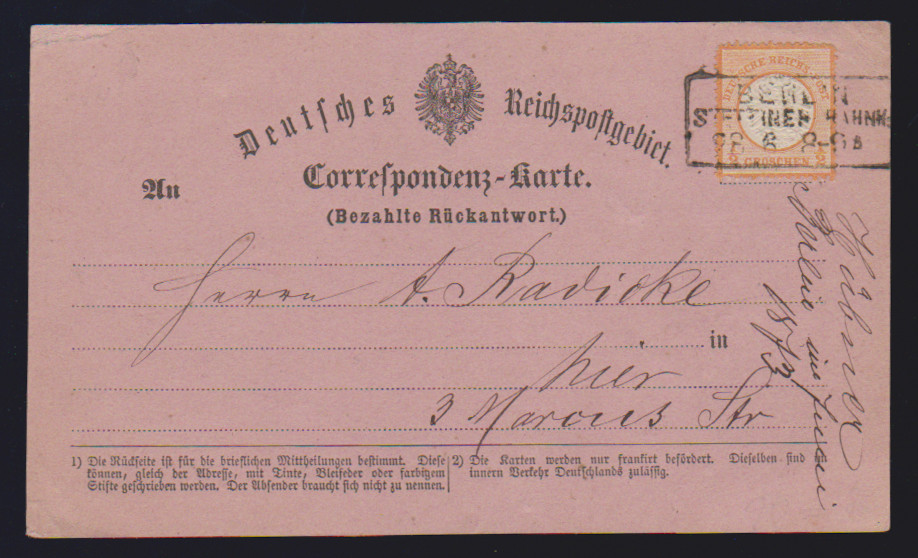 Deutsches Reichspostgebiet.
Correspondenz-Karte.
(Bezahlte Rückantwort.)
An
DEUTSCHE REICHS-POST
1/2 GROSCHEN 1/2
BERLIN
STETTINER BAHNH.
28 6 8-9
Herrn A. Radicke
in
hier
3 Marcus Str
Hübner
Berlin im Juni
1873
1) Die Rückseite ist für die brieflichen Mittheilungen bestimmt. Diese
können, gleich der Adresse, mit Tinte, Bleifeder oder farbigem
Stifte geschrieben werden. Der Absender braucht sich nicht zu nennen.
2) Die Karten werden nur frankirt befördert. Dieselben sind im
innern Verkehr Deutschlands zulässig.